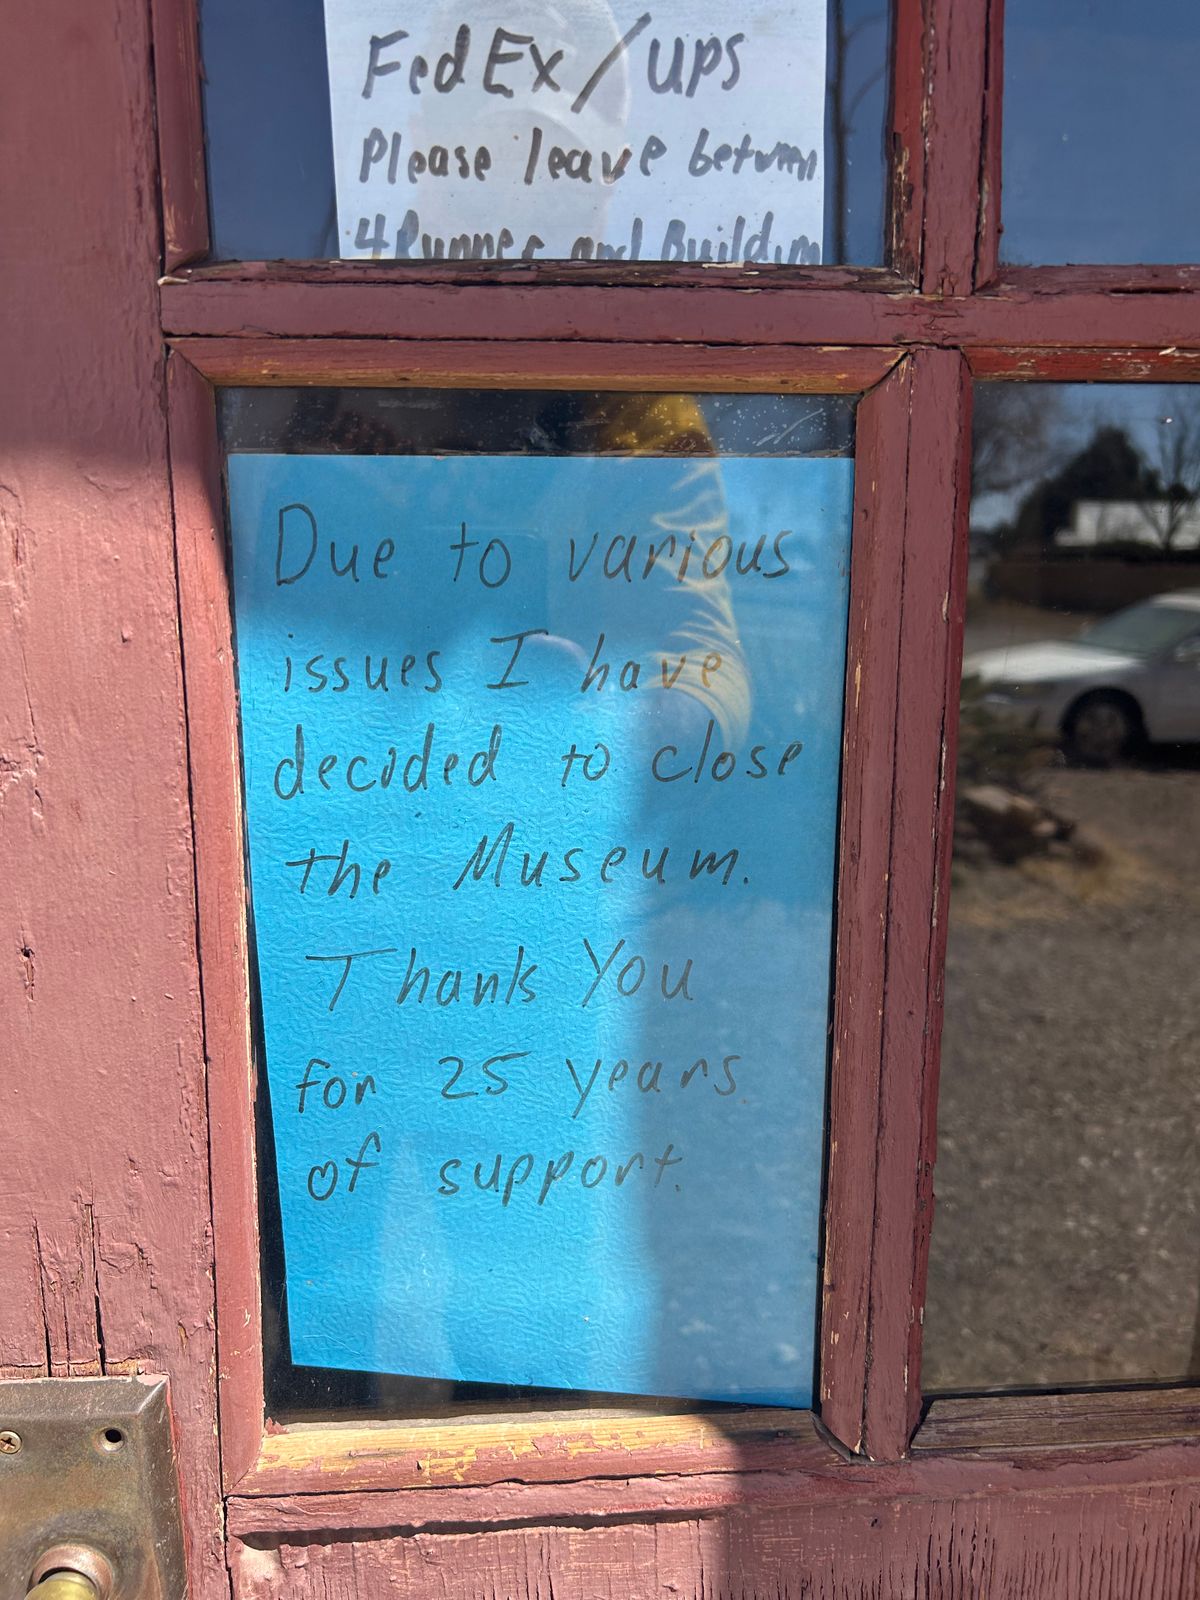 FedEx/UPS
Please leave between
4Runner and Building
Due to various
issues I have
decided to close
the Museum.
Thank You
for 25 years
of support.